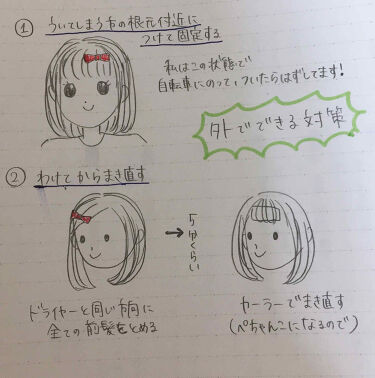 ① ういてしまう方の根元付近に
つけて固定する
私はこの状態で
自転車にのって、ついたらはずしてます!
外でできる対策
② わけてからまき直す
5分くらい
ドライヤーと同じ方向に
全ての前髪をとめる
カーラーでまき直す
(ぺちゃんこになるので)